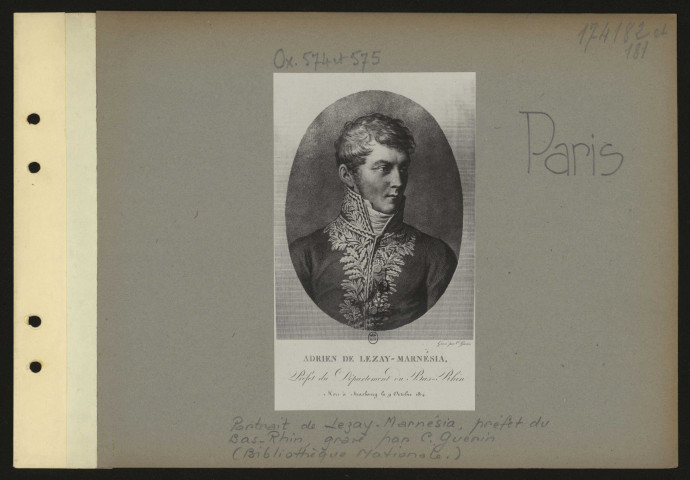 Ox. 574 et 575
174182 et
181
Paris
Gravé par C. Guérin
ADRIEN DE LEZAY-MARNÉSIA,
Préfet du Département du Bas-Rhin
Mort à Strasbourg le 9 Octobre 1814
Portrait de Lezay-Marnésia, préfet du
Bas-Rhin gravé par C. Guérin
(Bibliothèque Nationale.)